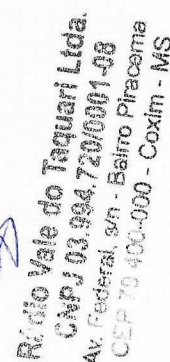 Rádio Vale do Taquari Ltda.
CNPJ 03.994.729/0001-08
Av. Federal, s/n - Bairro Piracema
CEP 79.400-000 - Coxim - MS